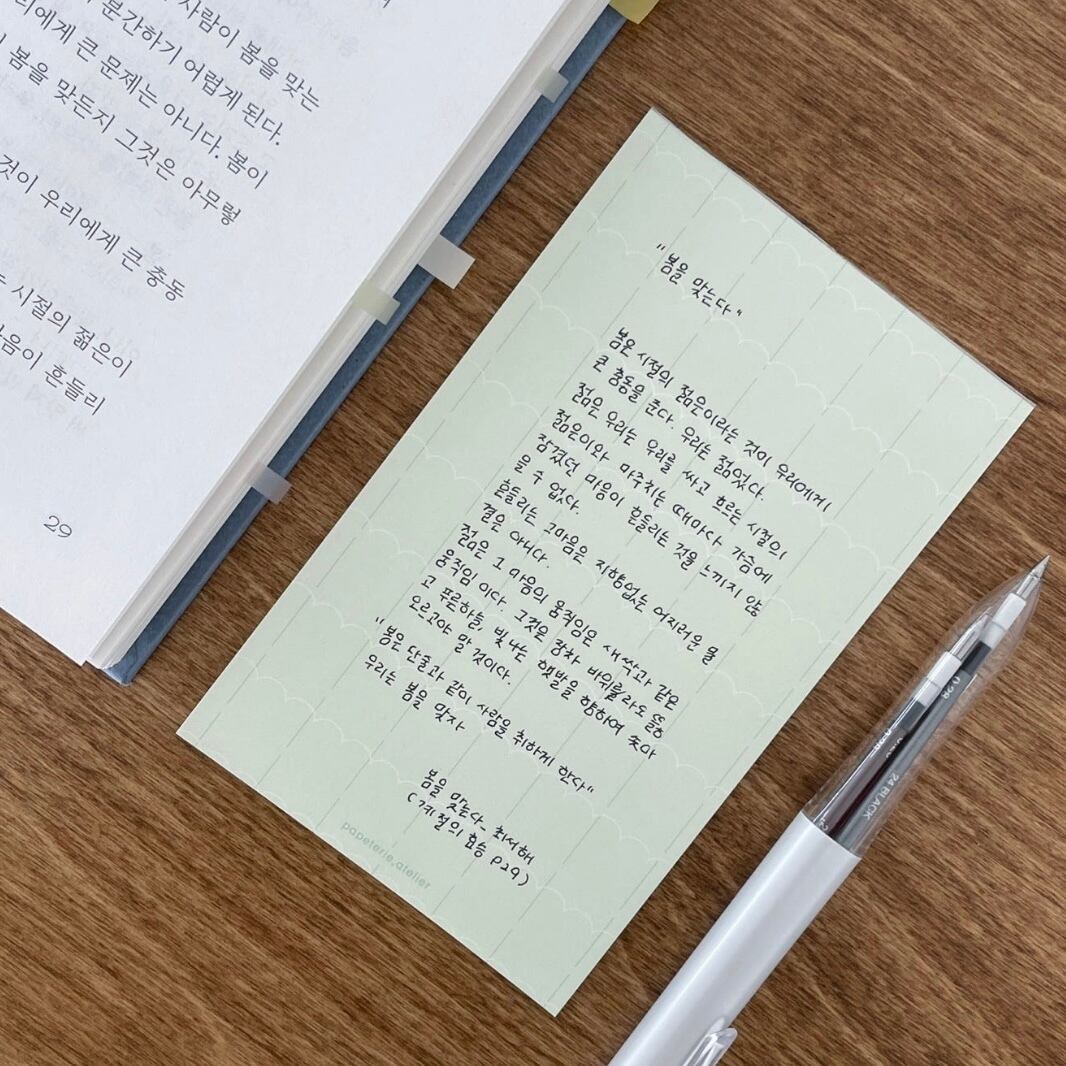 사람이 봄을 맞는
분간하기 어렵게 된다.
리에게 큰 문제는 아니다. 봄이
봄을 맞든지 그것은 아무렇
것이 우리에게 큰 충동
시절의 젊은이
마음이 흔들리
29
"봄을 맞는다"
봄은 시절의 젊은이라는 것이 우리에게
큰 충동을 준다. 우리는 젊었다.
젊은 우리는 우리를 싸고 흐르는 시절의
젊은이와 마주치는 때마다 가슴에
잠겼던 마음이 흔들리는 것을 느끼지 않
을 수 없다.
흔들리는 그마음은 지향없는 어지러운 물
결은 아니다.
젊은 그 마음의 움직임은 새싹과 같은
움직임 이다. 그것은 장차 바위라도 뚫
고 푸른하늘, 빛나는 햇발을 향하여 솟아
오르고야 말 것이다.
"봄은 단술과 같이 사람을 취하게 한다"
우리는 봄을 맞자
봄을 맞는다_ 최서해
(계절의 효능 P29)
papeterie.atelier
0.28
24 BLACK